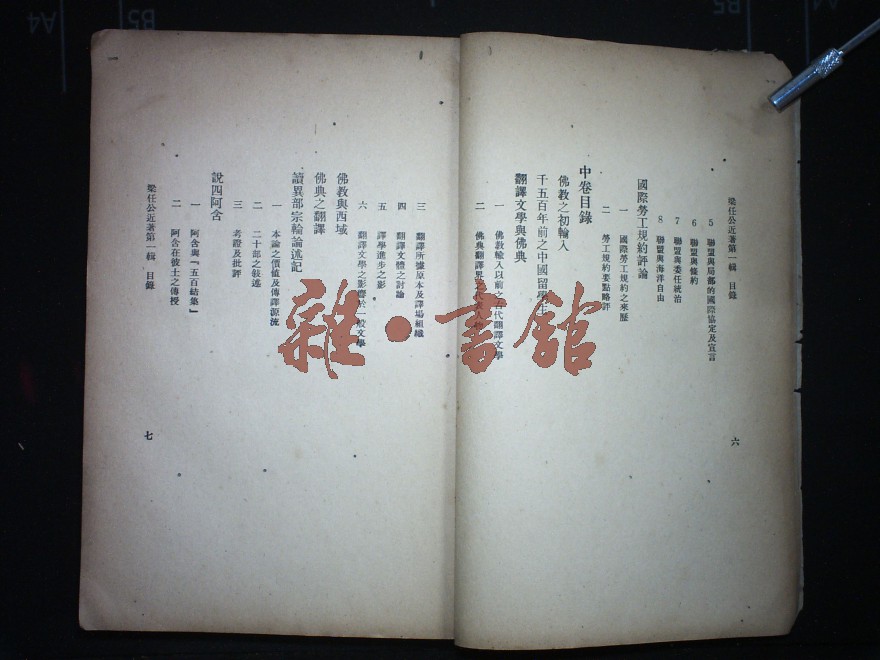 梁任公近著第一輯　目錄
5　聯盟與局部的國際協定及宣言
6　聯盟與條約
7　聯盟與委任統治
8　聯盟與海洋自由
國際勞工規約評論
一　國際勞工規約之來歷
二　勞工規約要點略評
中卷目錄
佛教之初輸入
千五百年前之中國留學生
翻譯文學與佛典
一　佛教輸入以前之古代翻譯文學
二　佛典翻譯界之代表人物
六
三　翻譯所據原本及譯場組織
四　翻譯文體之討論
五　譯學進步之影
六　翻譯文學之影響於一般文學
佛教與西域
佛典之翻譯
讀異部宗輪論述記
一　本論之價值及傳譯源流
二　二十部之敍述
三　考證及批評
說四阿含
一　阿含與『五百結集』
二　阿含在彼土之傳授
梁任公近著第一輯　目錄
七
雜·書館
A4
B5
B5
A4